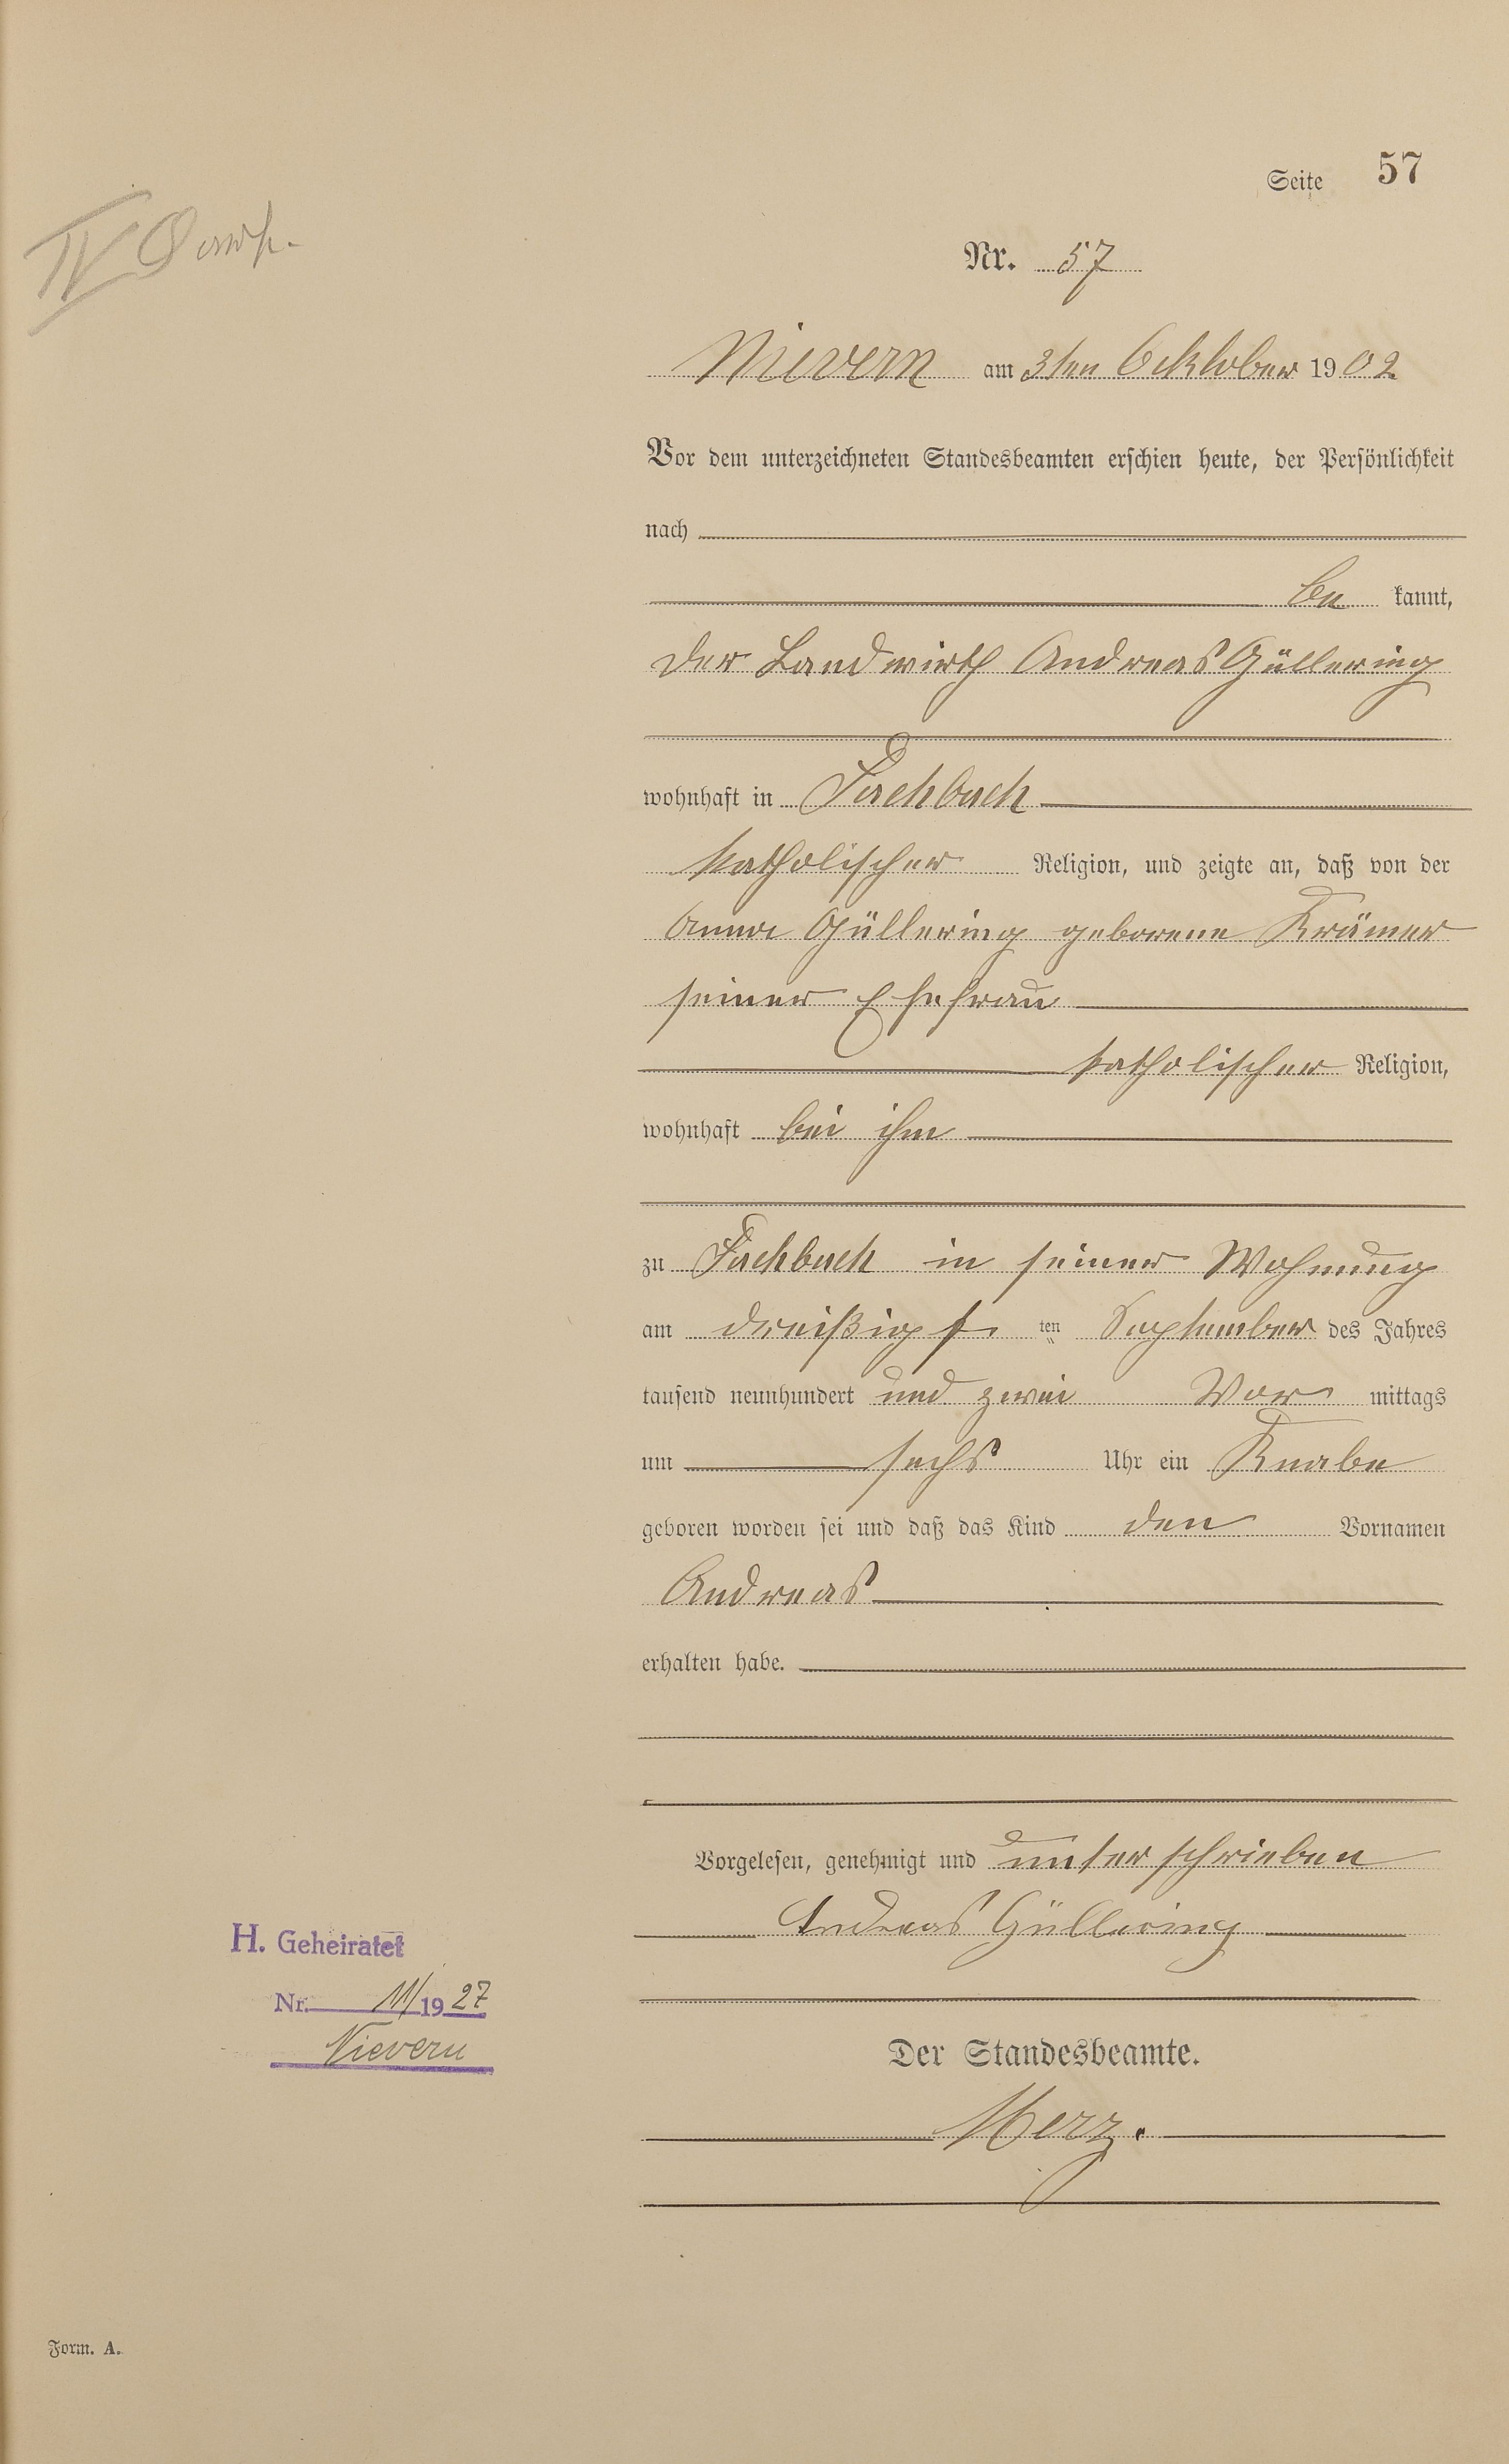 Seite 57
Nr. 57
Nievern am 3ten Ocktober 1902
Vor dem unterzeichneten Standesbeamten erschien heute, der Persönlichkeit
nach
be kannt,
der Landwirth Andreas Güllering
wohnhaft in Fachbach
katholischer Religion, und zeigte an, daß von der
Anna Güllering geborene Krämer
seiner Ehefrau
katholischer Religion,
wohnhaft bei ihm
zu Fachbach in seiner Wohnung
am dreißigs ten September des Jahres
tausend neunhundert und zwei Vor mittags
um sechs Uhr ein Knabe
geboren worden sei und daß das Kind den Vornamen
Andreas
erhalten habe.
Vorgelesen, genehmigt und unterschrieben
Andreas Güllering
H. Geheiratet
Nr. 11/1927
Nievern
Der Standesbeamte.
Merz.
Form. A.